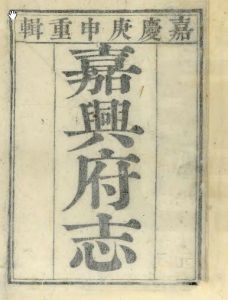 嘉慶庚申重輯
嘉興府志